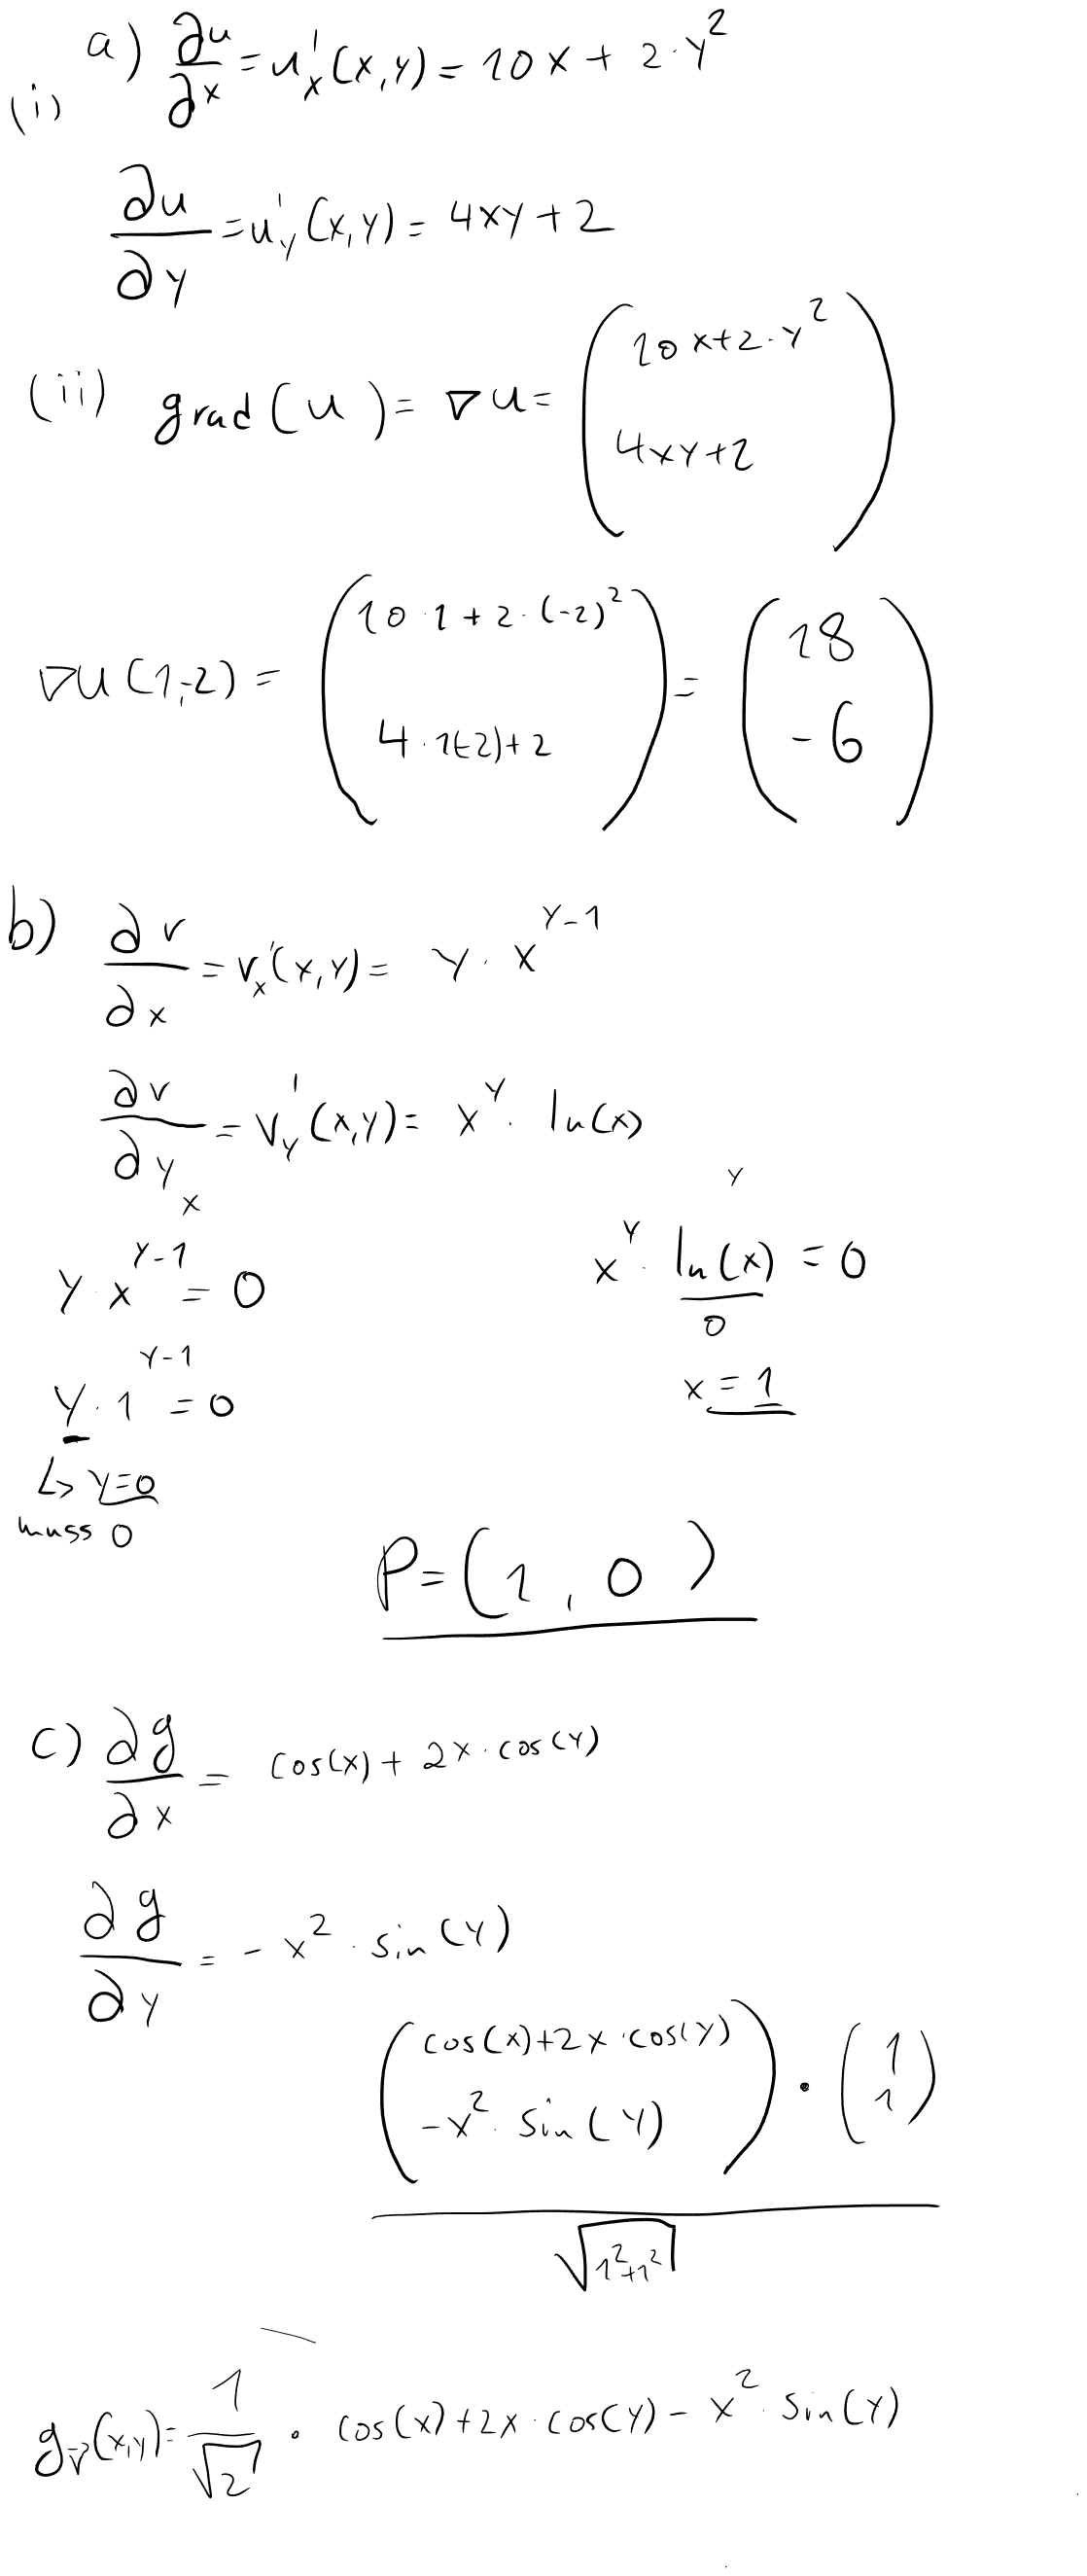 a) ∂u/∂x = u'ₓ(x,y) = 10x + 2·y²
(i)
∂u/∂y = u'ᵧ(x,y) = 4xy + 2
(ii) grad(u) = ∇u = (10x+2·y² 4xy+2)
∇u(1,-2) = (10·1 + 2·(-2)² 4·1(-2)+2) = (18 -6)
b) ∂v/∂x = v'ₓ(x,y) = y·x^(y-1)
∂v/∂y = v'ᵧ(x,y) = x^y · ln(x)
x
y
y·x^(y-1) = 0
x^y · ln(x) = 0
0
y·1^(y-1) = 0
x = 1
↳ y=0
muss 0
P=(1, 0)
c) ∂g/∂x = cos(x) + 2x·cos(y)
∂g/∂y = - x² · sin(y)
(cos(x)+2x·cos(y) -x²·sin(y)) · (1 1)
√(1²+1²)
g_v⃗(x,y) = 1/√2 · cos(x)+2x·cos(y) - x²·sin(y)